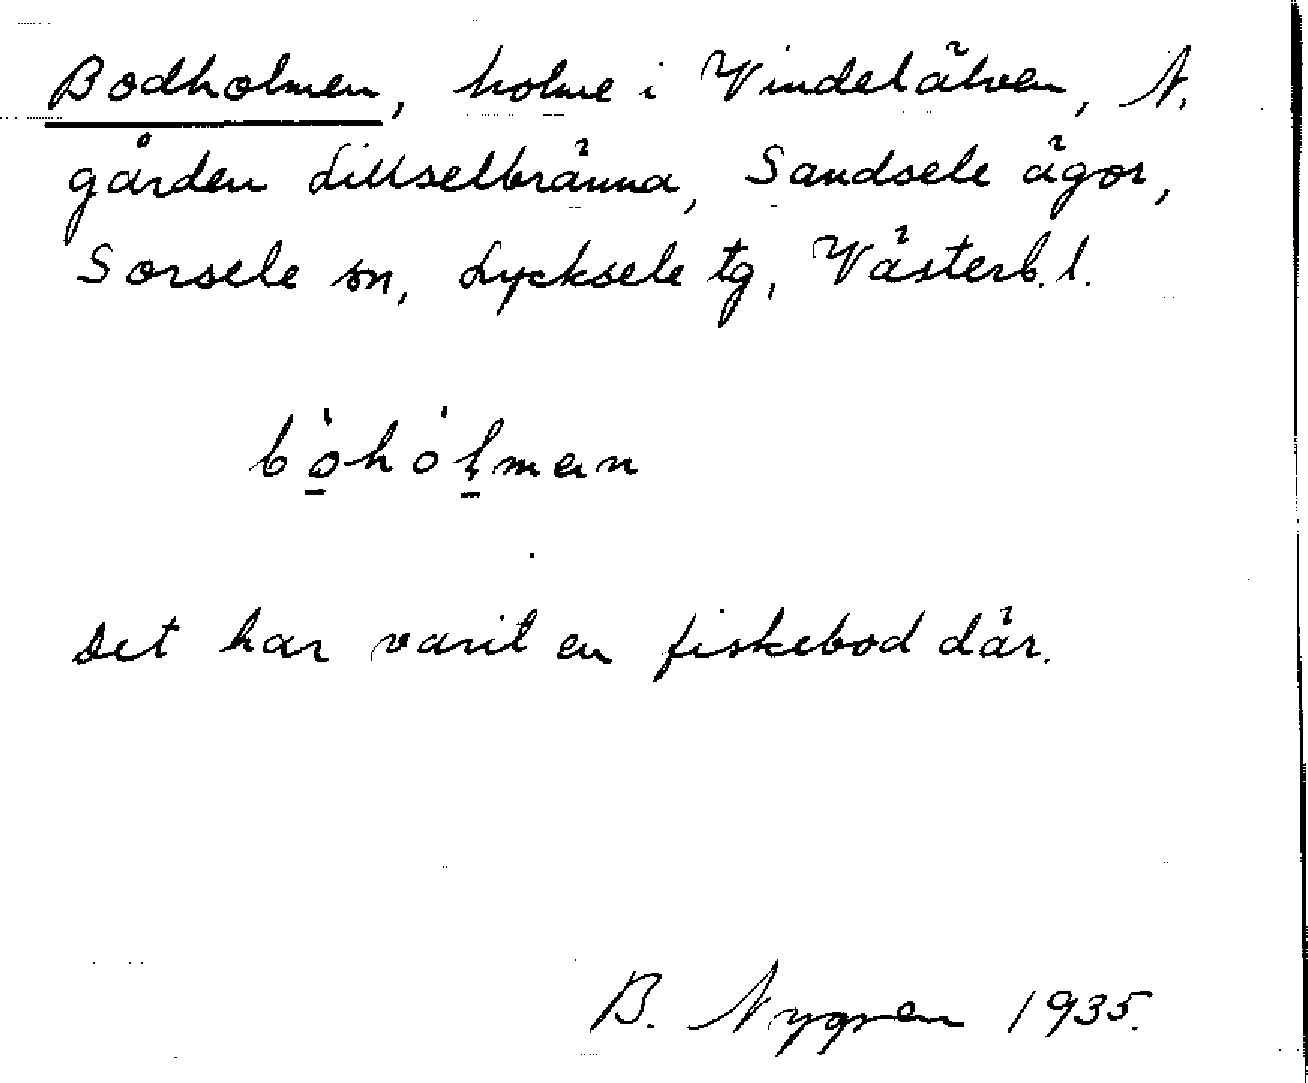 Bodholmen, holme i Vindelälven, N.
gården Lillselbränna, Sandsele ägor,
Sorsele sn, Lycksele tg, Västerb. l.
bo̱̍hȯḻmen
Det har varit en fiskebod där.
B. Nygren 1935.